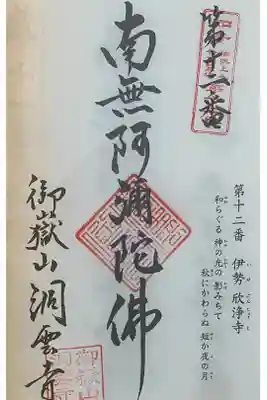 第十二番
伊勢 欣浄寺
和らぐる 神の光の 影みちて
秋にかわらぬ 短か夜の月
第十二番
南無阿彌陀佛
御嶽山洞雲寺